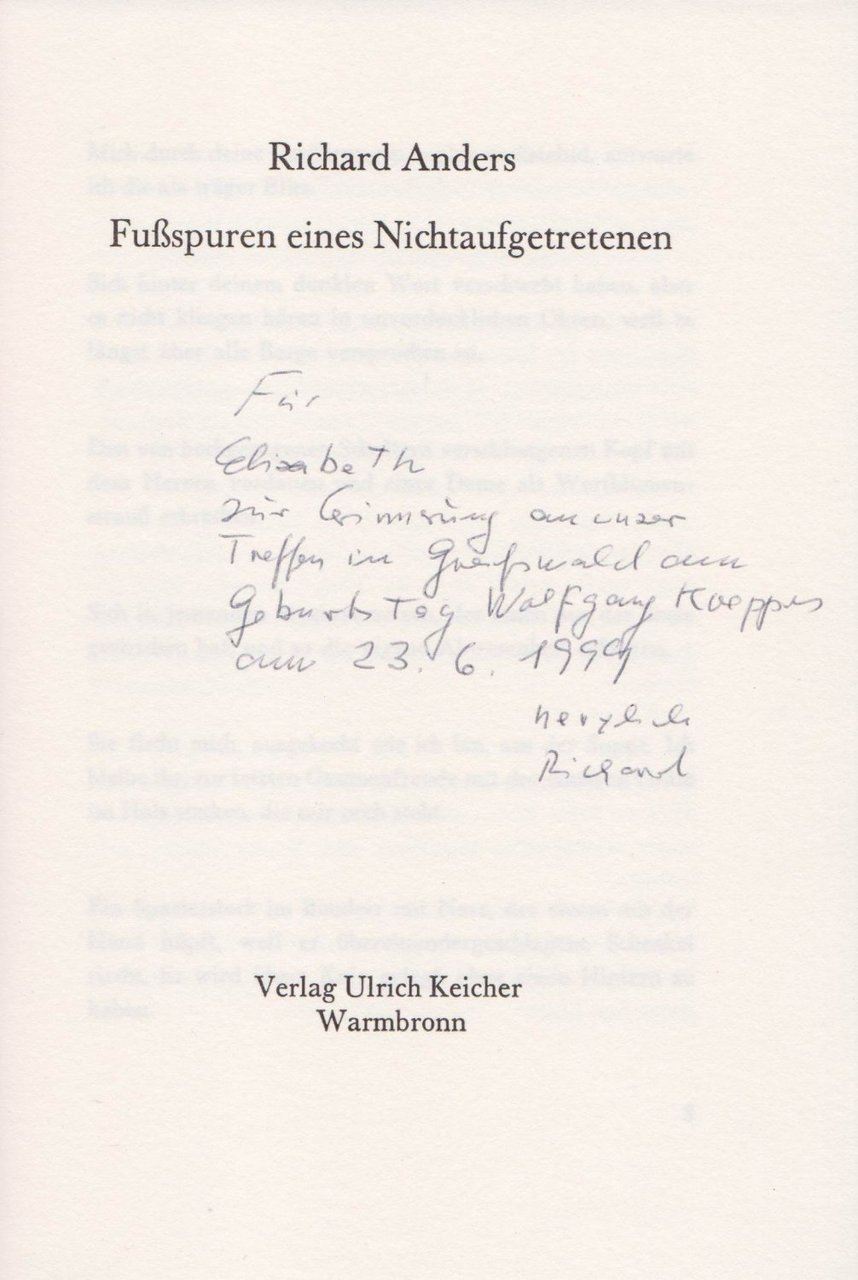 Richard Anders
Fußspuren eines Nichtaufgetretenen
Für
Elisabeth
zur Erinnerung an unser
Treffen in Greifswald am
Geburtstag Wolfgang Koeppens
am 23. 6. 1999
herzlich
Richard
Verlag Ulrich Keicher
Warmbronn